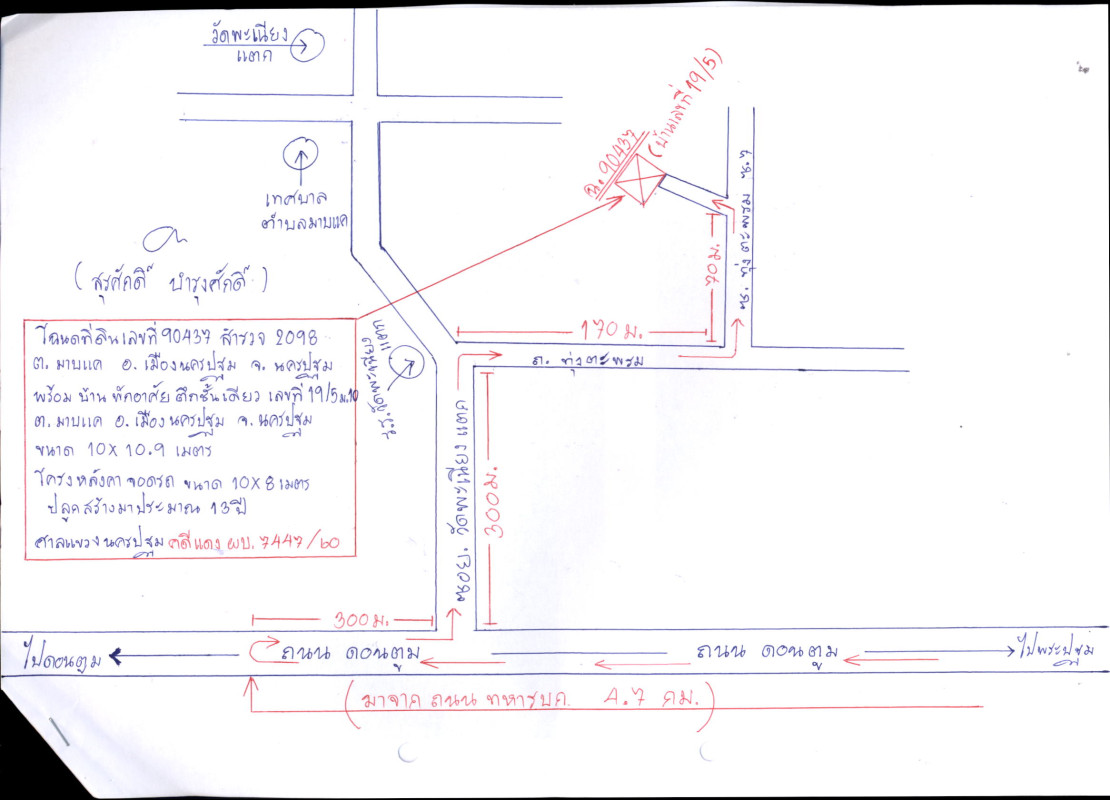 วัดพะเนียง
แตก
ฉ. 90437
(บ้านเลขที่ 19/5)
เทศบาล
ตำบลมาบแค
(สุรศักดิ์ บำรุงศักดิ์)
โฉนดที่ดินเลขที่ 90437 สำรวจ 2098
ต. มาบแค อ. เมืองนครปฐม จ. นครปฐม
พร้อม บ้าน พักอาศัย ตึกชั้นเดียว เลขที่ 19/5 ม.10
ต. มาบแค อ. เมืองนครปฐม จ. นครปฐม
ขนาด 10x10.9 เมตร
โครงหลังคา จอดรถ ขนาด 10x8 เมตร
ปลูกสร้างมาประมาณ 13 ปี
ศาลแขวงนครปฐม คดีแดง ผบ. 7447/60
ร.ร. วัดพะเนียง
แตก
170 ม.
ถ. ทุ่งตะพรม
70 ม.
ทุ่งตะพรม ซ.7
ซอย. วัดพะเนียง แตก
300 ม.
300 ม.
ไปดอนตูม
ถนน ดอนตูม
ถนน ดอนตูม
ไปพระปฐม
(มาจาก ถนน ทหารบก 4.7 กม.)